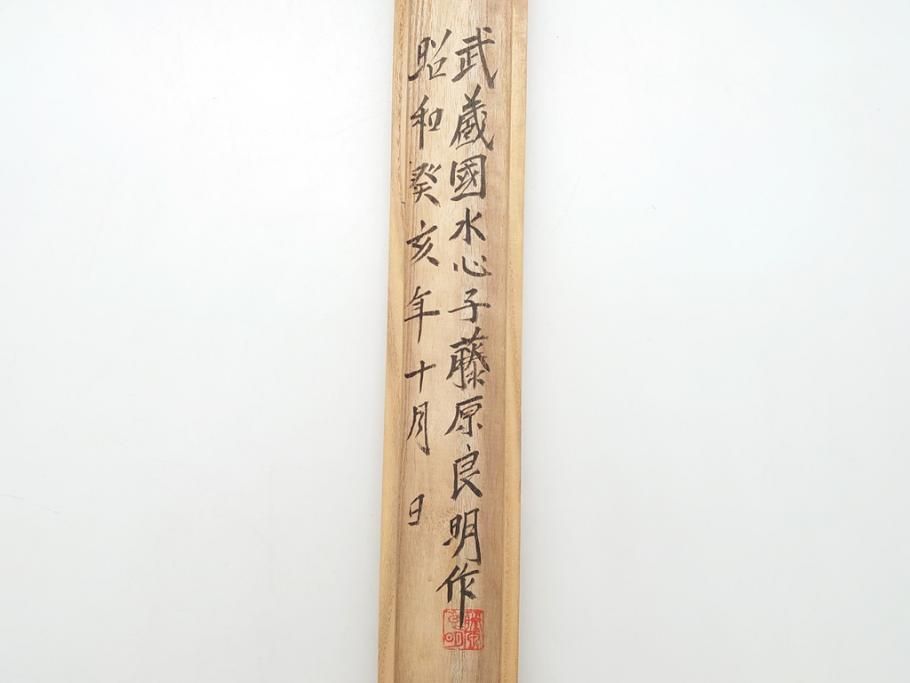 武蔵國水心子藤原良明作
昭和癸亥年十月 日
藤原良明